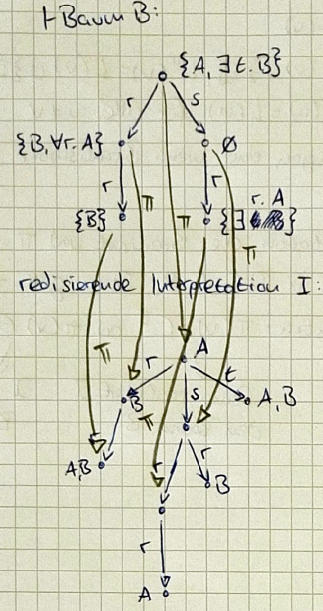 H Baum B:
{A, ∃t.B}
r s
{B, ∀r.A} ∅
r r
r. A
{B} π π {∃ } π
redisierende Interpretation I:
A
π r t
B s A, B
π
r
A,B B
r
A